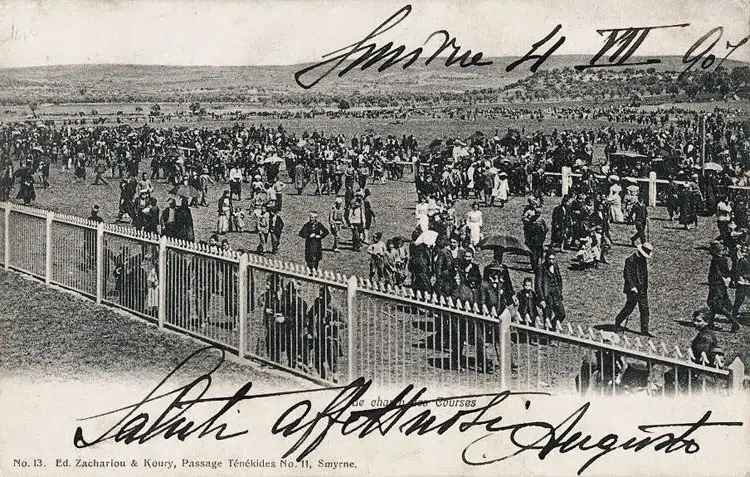 Smirne 4 VII 907
Le champ des Courses
Saluti affettuosi Augusto
No. 13. Ed. Zachariou & Koury, Passage Ténékides No. 11, Smyrne.